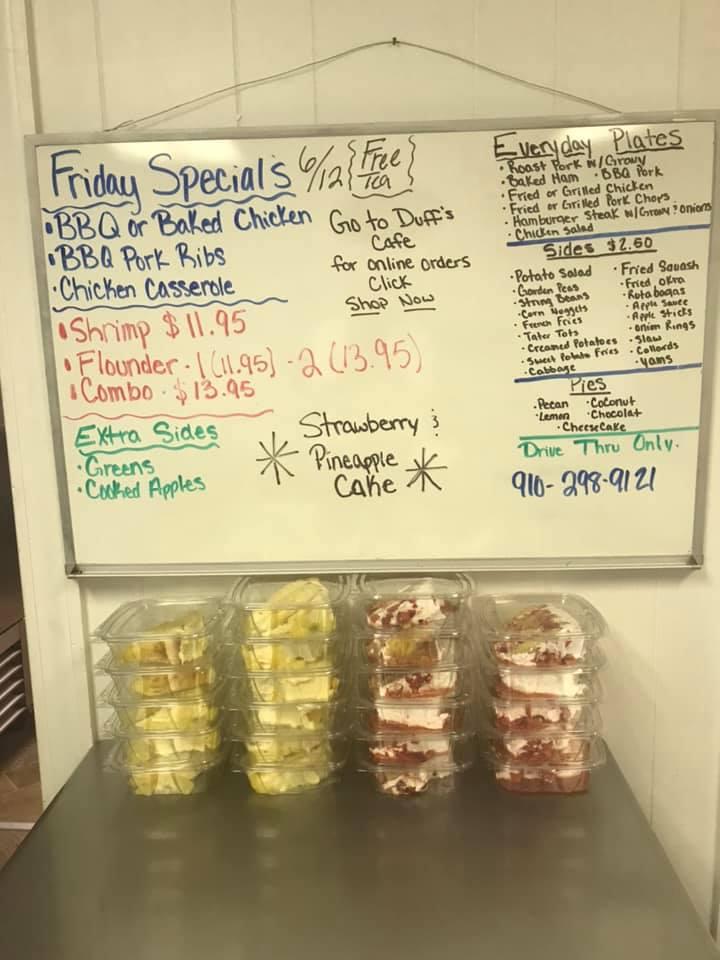 Friday Specials 6/12 {Free Tea}
• BBQ or Baked Chicken
• BBQ Pork Ribs
• Chicken Casserole
• Shrimp $11.95
• Flounder - 1 (11.95) - 2 (13.95)
• Combo - $13.95
Extra Sides
• Greens
• Cooked Apples
Go to Duff's
Cafe
for online orders
Click
Shop Now
Strawberry &
Pineapple
Cake
Everyday Plates
• Roast Pork w/Gravy
• Baked Ham • BBQ Pork
• Fried or Grilled Chicken
• Fried or Grilled Pork Chops
• Hamburger Steak w/Gravy & onions
• Chicken Salad
Sides $2.50
• Potato Salad • Fried Squash
• Garden Peas • Fried okra
• String Beans • Rotabagas
• Corn Nuggets • Apple Sauce
• French Fries • Apple Sticks
• Tater Tots • onion Rings
• Creamed Potatoes • Slaw
• Sweet Potato Fries • Collards
• Cabbage • Yams
Pies
• Pecan • Coconut
• Lemon • Chocolat
• CheeseCake
Drive Thru Only.
910-298-9121